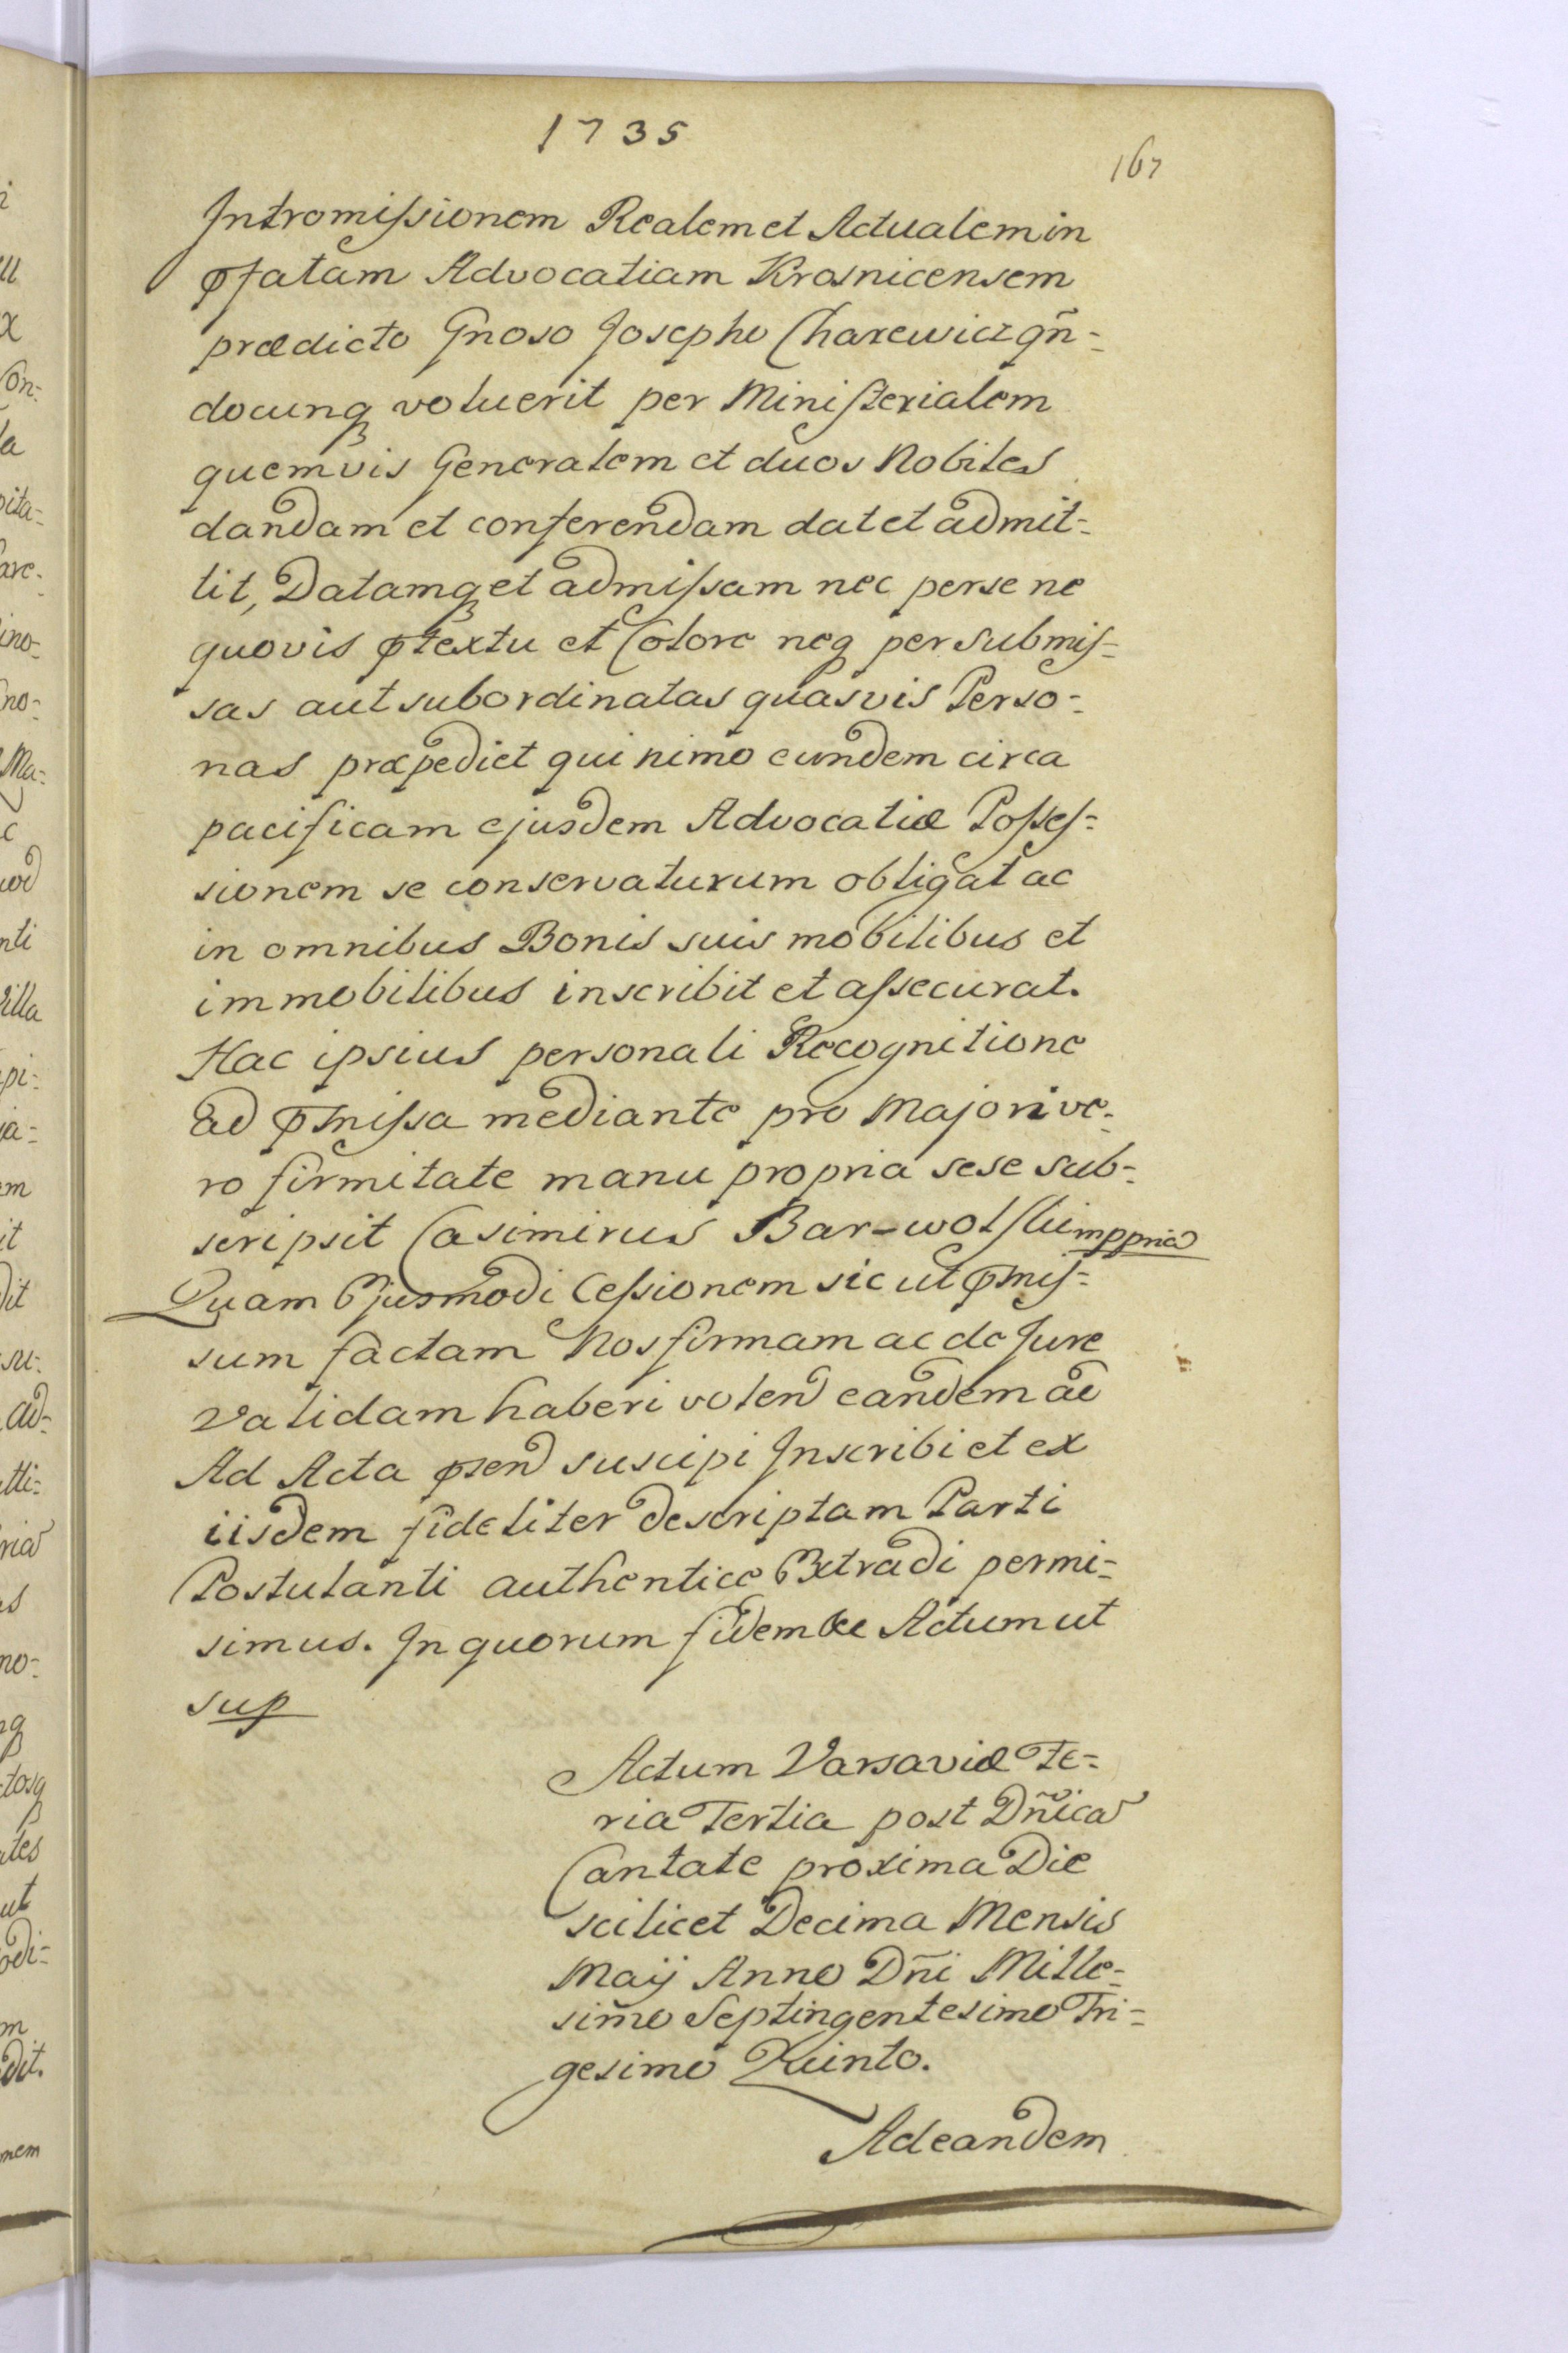 1735
167
Intromiſsionem Realem et Actualem in
pfatam Advocatiam Krosnicensem
prædicto Gnoso Josepho Charewicz qñ-
docunq voluerit per Ministerialem
quemvis Generalem et duos Nobiles
dandam et conferendam dat et admit-
tit, Datamq et admiſsam nec per se ne
quovis ptextu et Colore neq per submiſ-
sas aut subordinatas quasvis Perso-
nas præpediet qui nimo eundem circa
pacificam ejusdem Advocatiæ Poſseſ-
sionem se conservaturum obligat ac
in omnibus Bonis suis mobilibus et
immobilibus inscribit et aſsecurat.
Hac ipsius personali Recognitione
ad pmiſsa mediante pro Majori ve-
ro firmitate manu propria sese sub-
scripsit Casimirus Bar-wolſki mppria
Quam Ejusmodi Ceſsionem sicut pmiſ-
sum factam Nos firmam ac de Jure
validam haberi volen eandem ac
Ad Acta psen suscipi Inscribi et ex
iisdem fideliter descriptam Parti
Postulanti authentice Extradi permi-
simus. In quorum fidem &c Actum ut
sup
Actum Varsaviæ Fe-
ria Tertia post Dñica
Cantate proxima Die
scilicet Decima Mensis
Maij Anno Dñi Mille-
simo Septingentesimo Tri-
gesimo Quinto.
Ad eandem